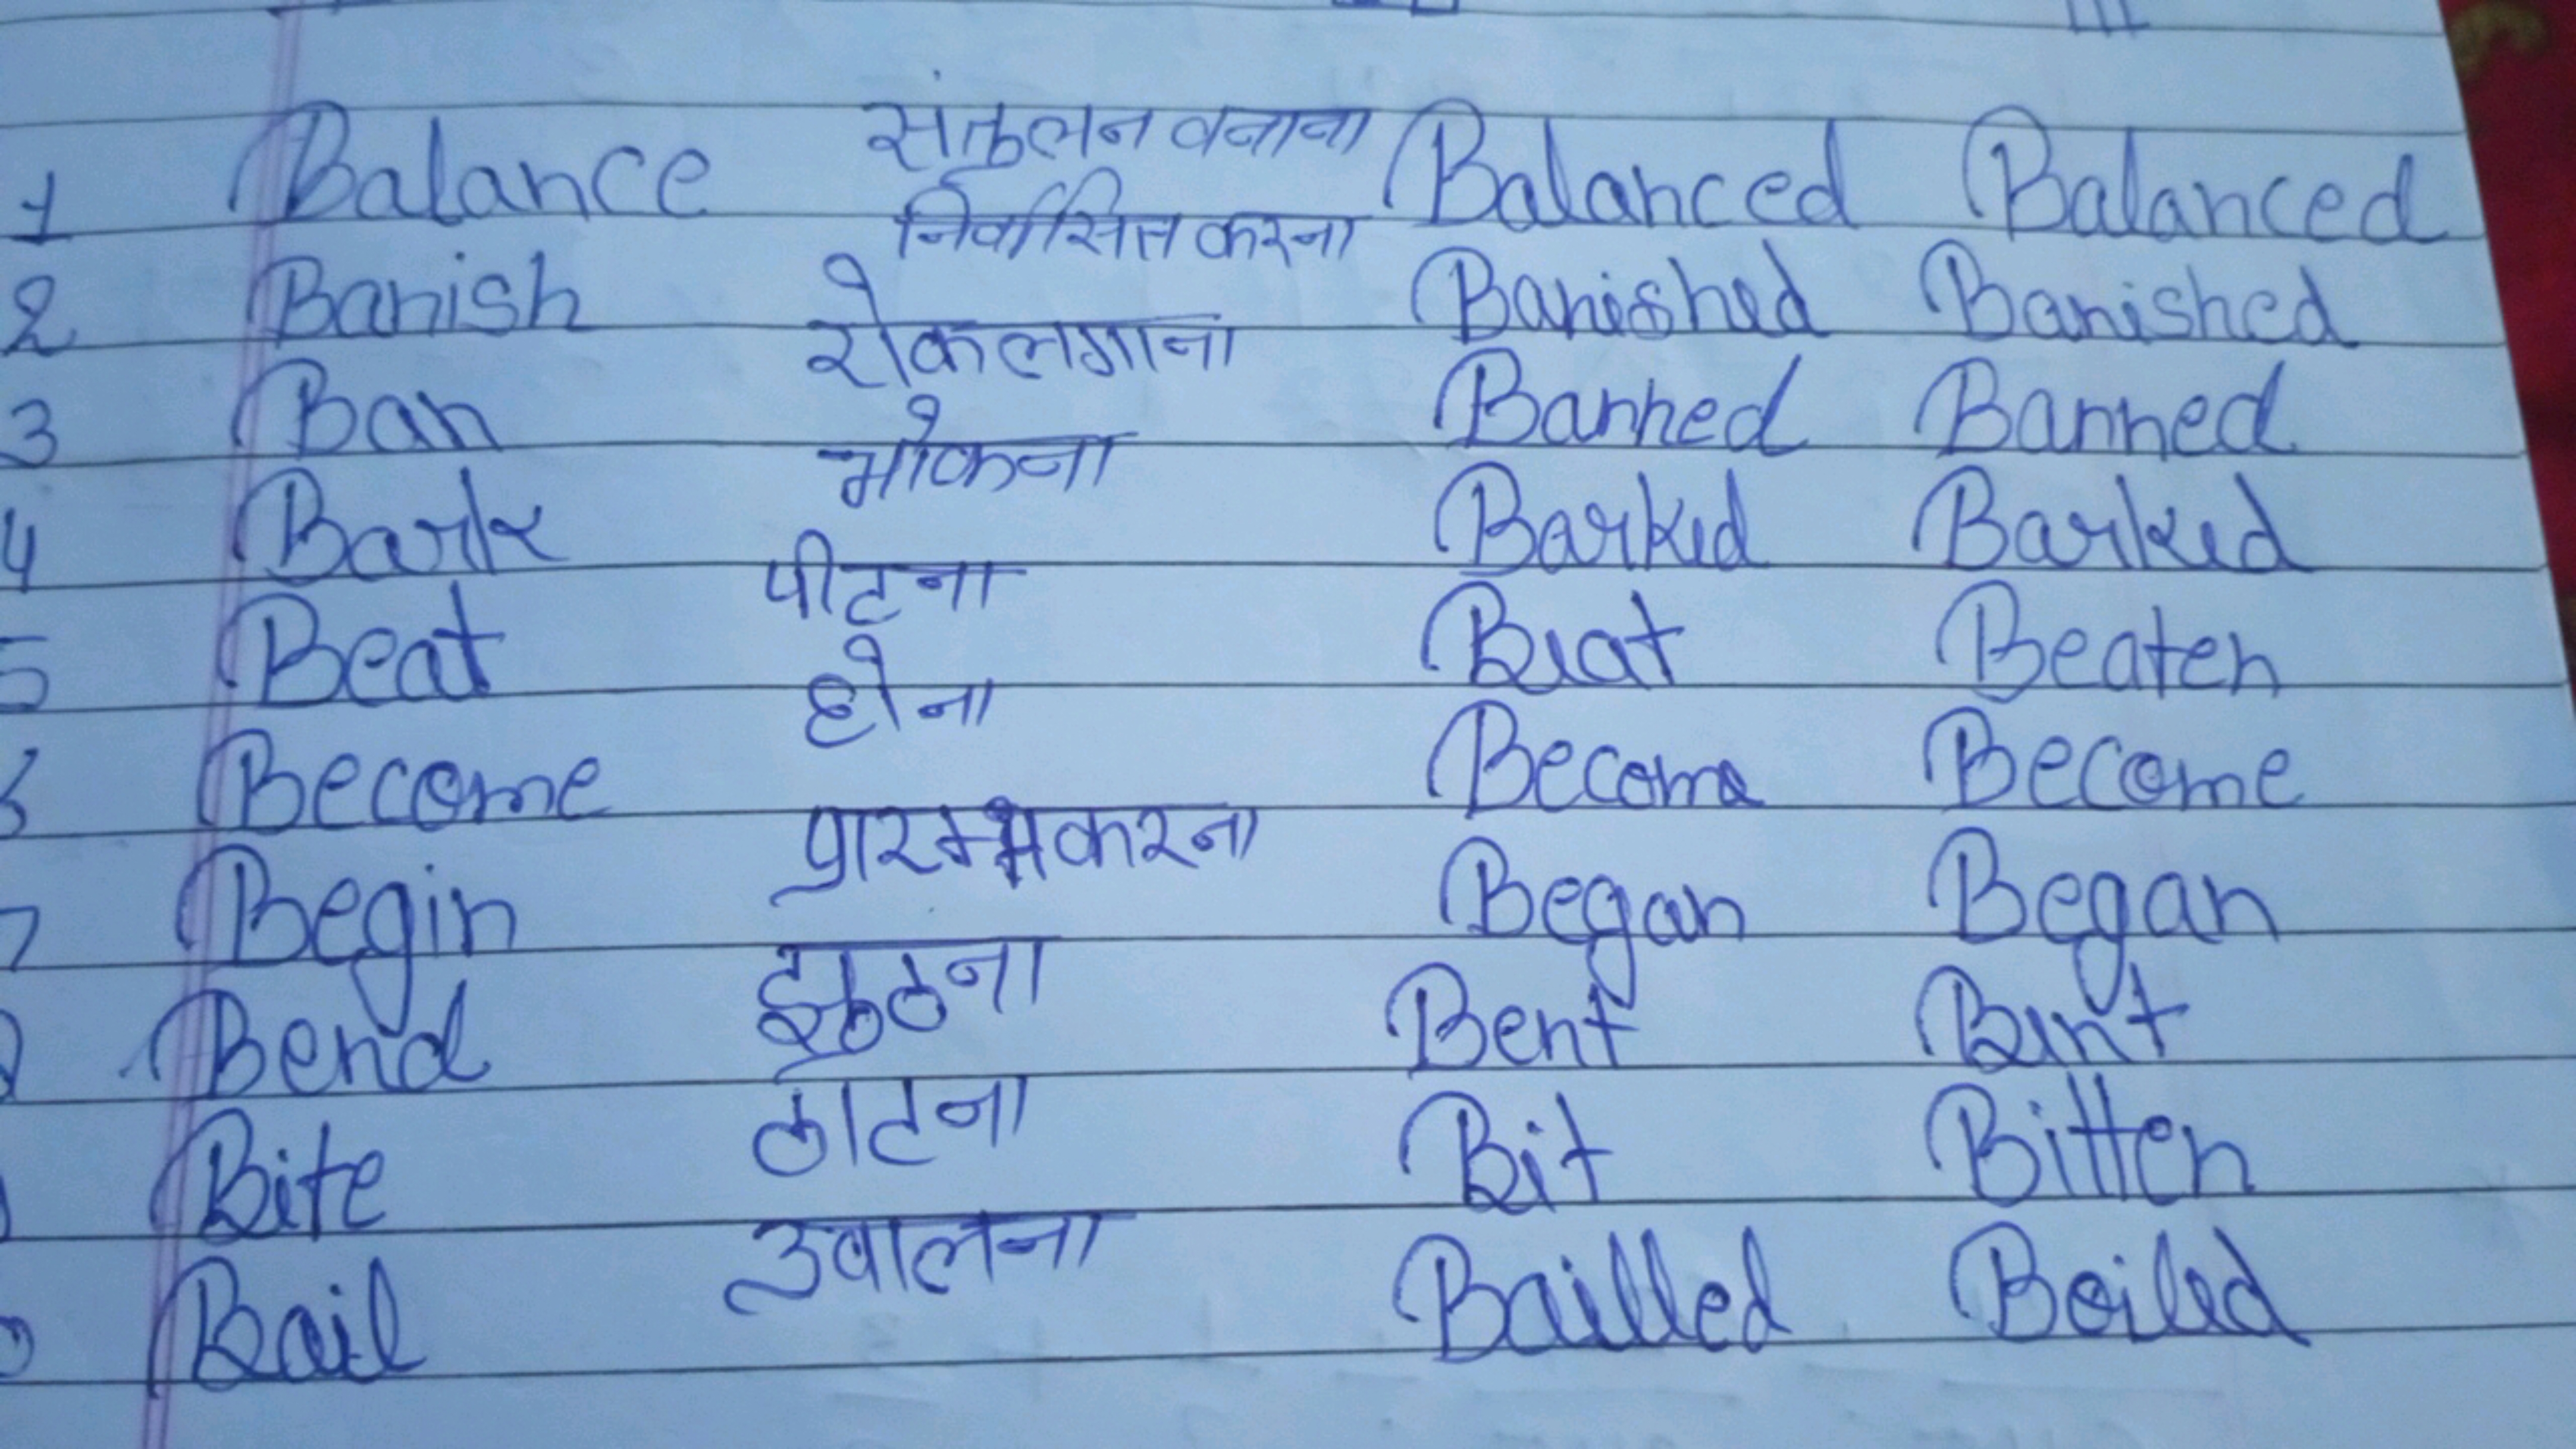 1 Balance संतुलन वनाना Balanced Balanced
2 Banish निर्वासित करना Banished Banished
3 Ban रोक लगाना Banned Banned
4 Bark भोकना Barked Barked
5 Beat पीटना Beat Beaten
6 Become होना Become Become
7 Begin प्रारम्भ करना Began Began
Bend Bent Bent
Bite काटना Bit Bitten
Bail उवालना Bailled Boiled